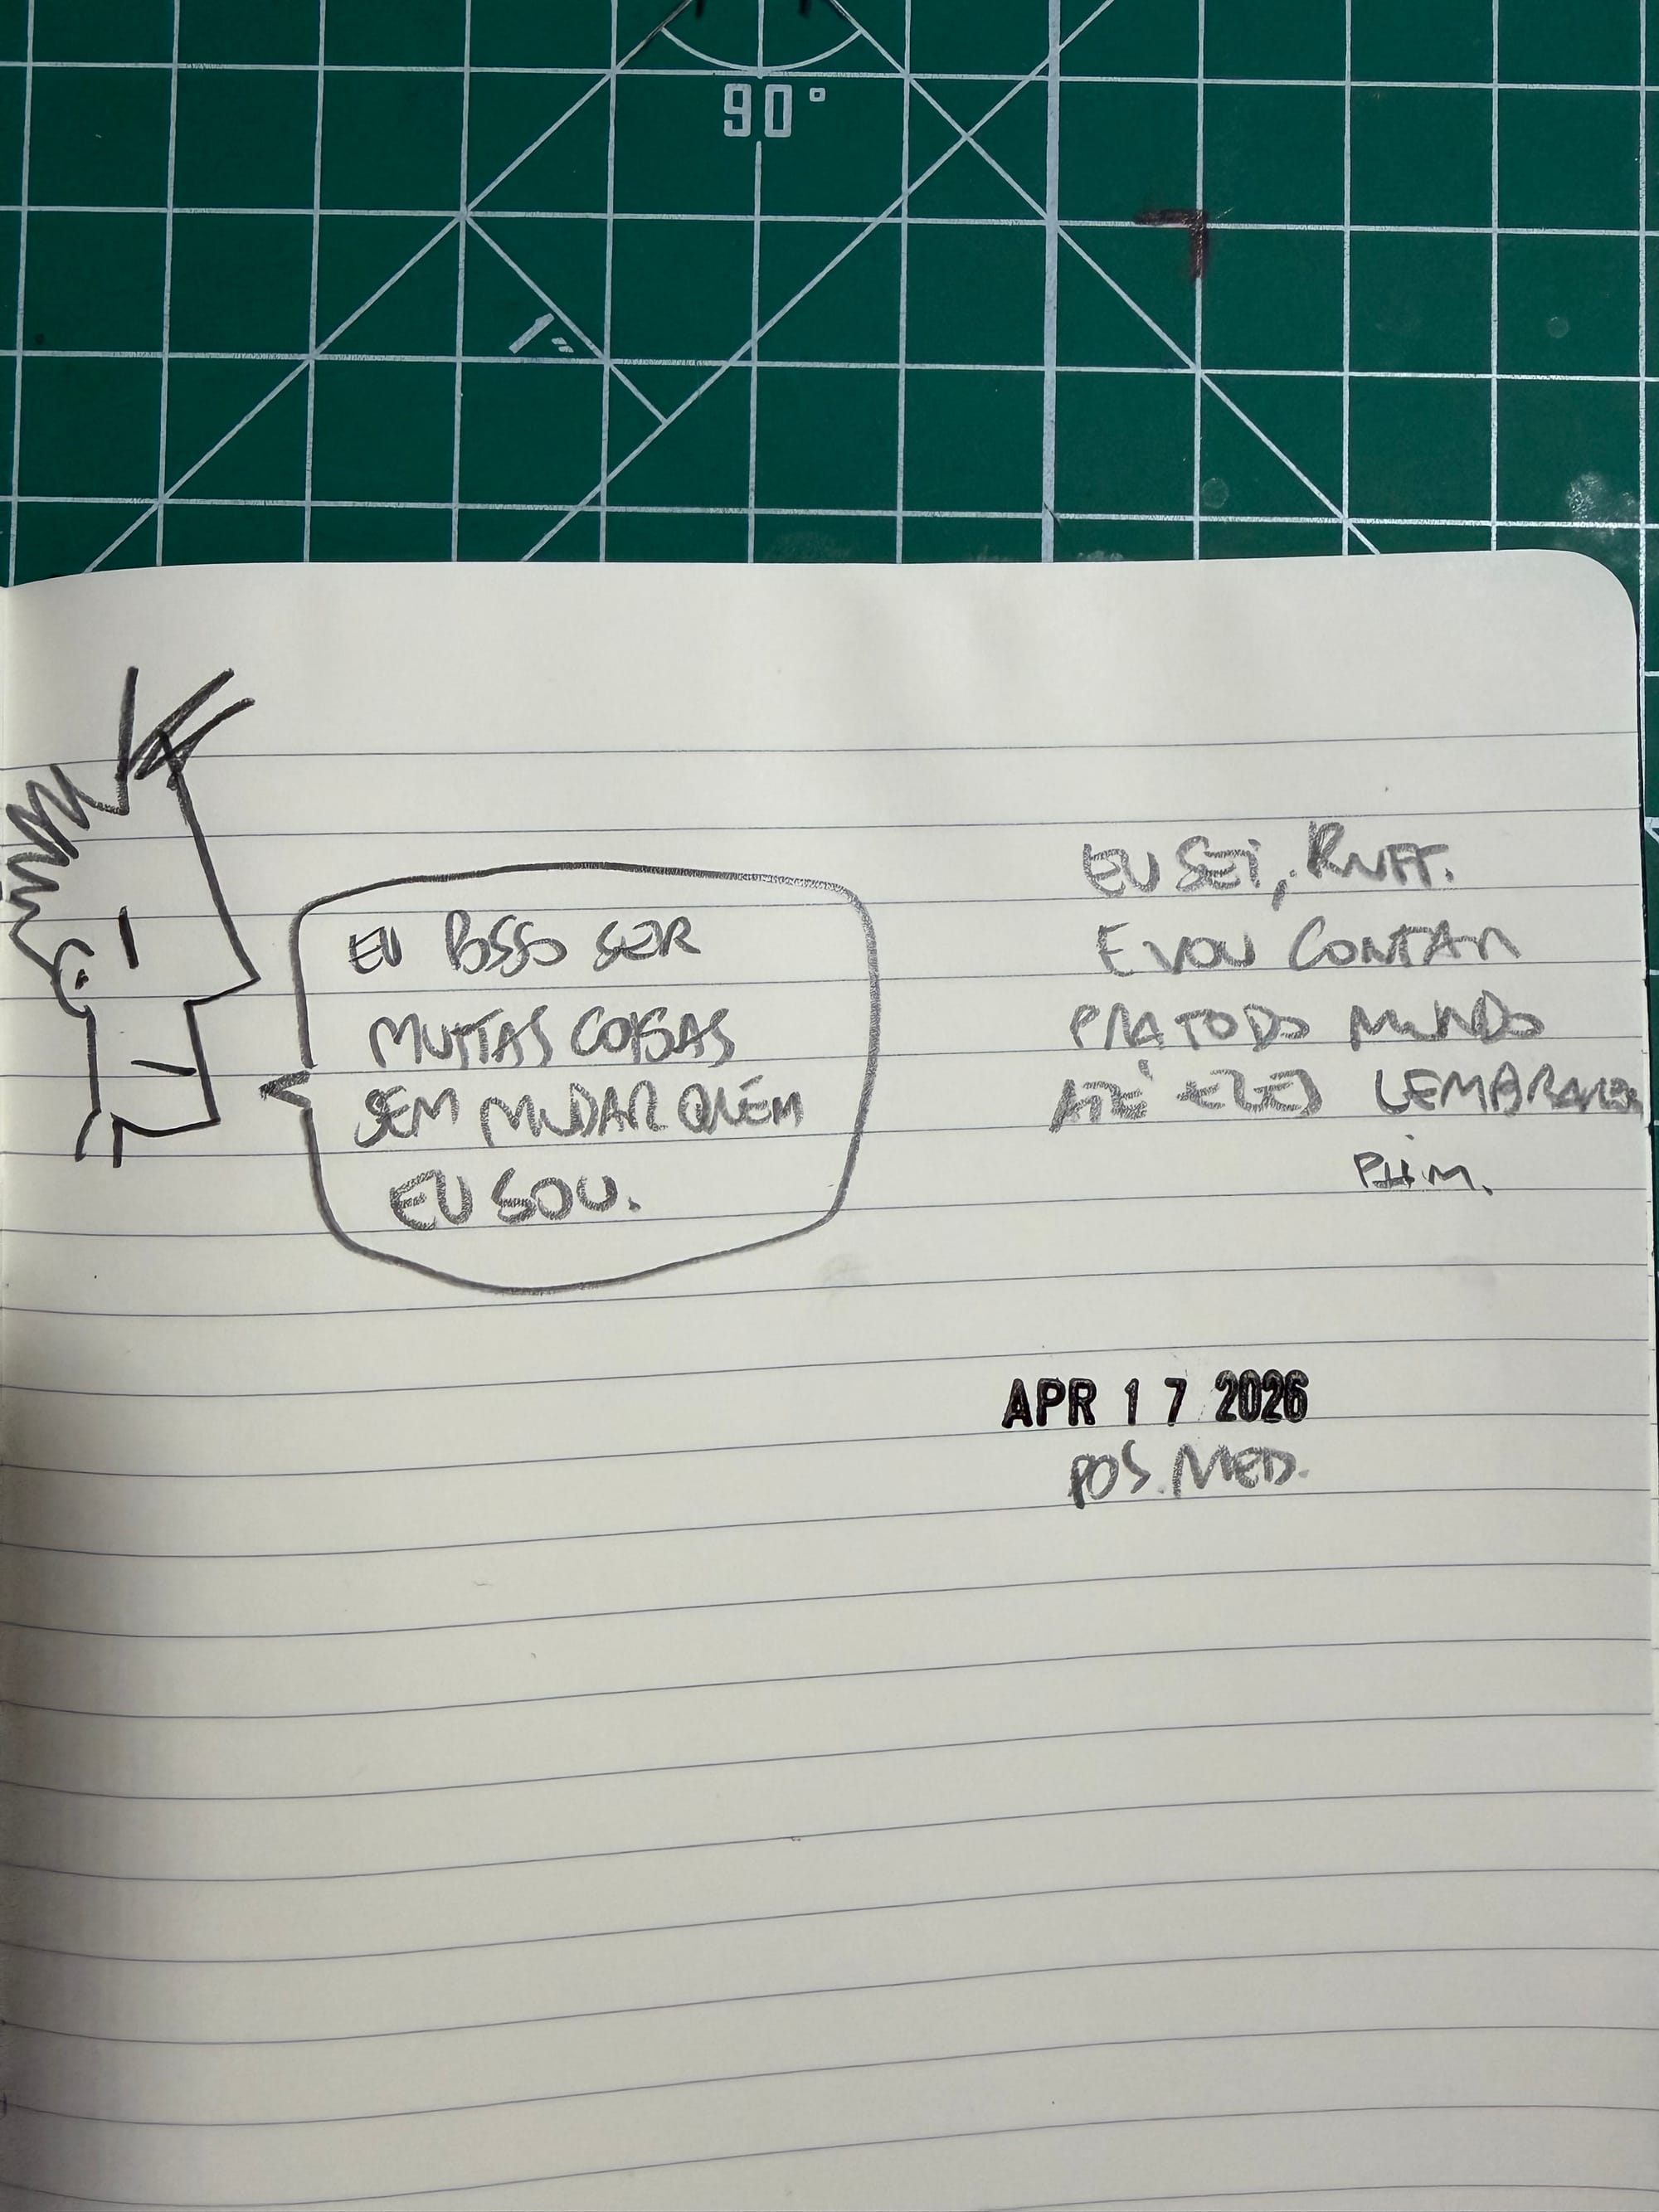 90°
1"
EU POSSO SER
MUITAS COISAS
SEM MUDAR QUEM
EU SOU.
EU SEI, RUFF.
E VOU CONTAR
PRA TODO MUNDO
ATÉ ELES LEMBRAREM
APR 17 2026
POS. MED.